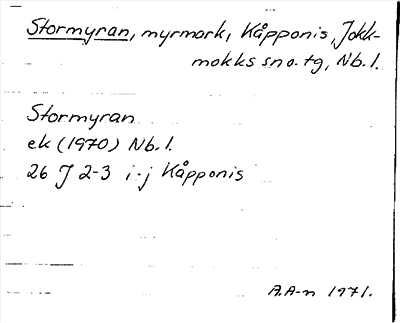 Stormyran, myrmark, Kåpponis, Jokk-
mokks sn o. tg, Nb. l.
Stormyran
ek (1970) Nb. l.
26 J 2-3 i-j Kåpponis
A.A-n 1971.